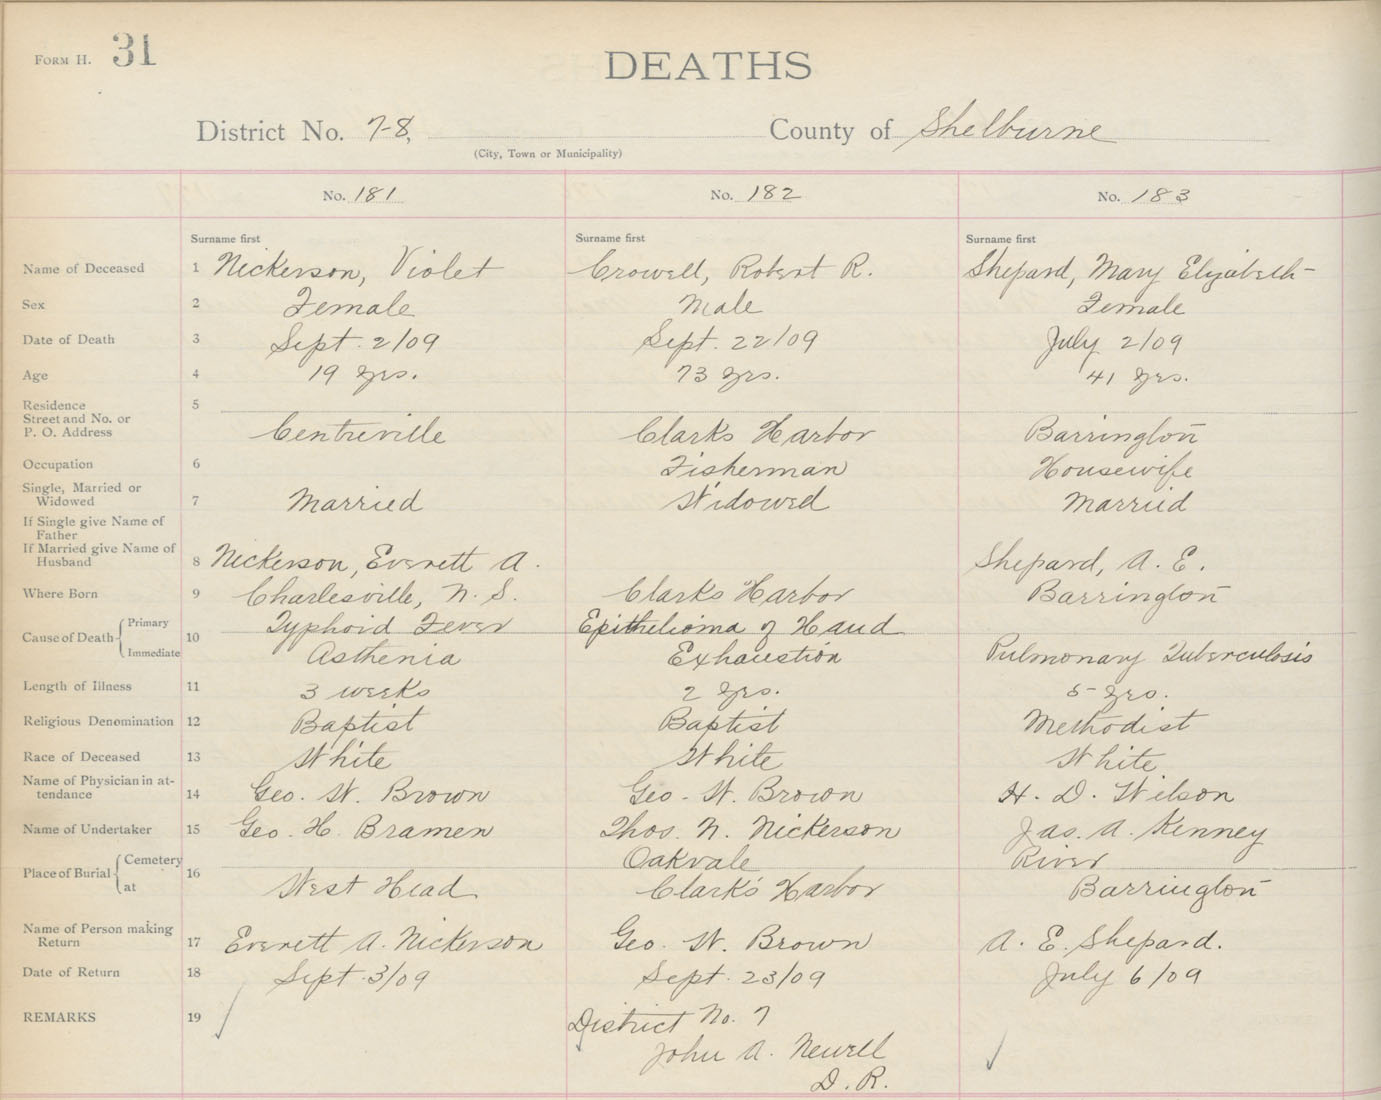 FORM H. 31
DEATHS
District No. 7-8, County of Shelburne
(City, Town or Municipality)
No. 181 No. 182 No. 183
Surname first Surname first Surname first
Name of Deceased 1 Nickerson, Violet Crowell, Robert R. Shepard, Mary Elizabeth
Sex 2 Female Male Female
Date of Death 3 Sept. 2/09 Sept. 22/09 July 2/09
Age 4 19 yrs. 73 yrs. 41 yrs.
Residence 5
Street and No. or
P. O. Address Centreville Clarks Harbor Barrington
Occupation 6 Fisherman Housewife
Single, Married or
Widowed 7 Married Widowed Married
If Single give Name of
Father
If Married give Name of
Husband 8 Nickerson, Everett A. Shepard, A. E.
Where Born 9 Charlesville, N. S. Clarks Harbor Barrington
Cause of Death 10 Primary Typhoid Fever Epithelioma of Hand
Immediate Asthenia Exhaustion Pulmonary Tuberculosis
Length of Illness 11 3 weeks 2 yrs. 5 yrs.
Religious Denomination 12 Baptist Baptist Methodist
Race of Deceased 13 White White White
Name of Physician in at-
tendance 14 Geo. W. Brown Geo. W. Brown H. D. Wilson
Name of Undertaker 15 Geo. H. Bramen Thos. N. Nickerson Jas. A. Kenney
Place of Burial 16 Cemetery Oakvale River
at West Head Clark's Harbor Barrington
Name of Person making
Return 17 Everett A. Nickerson Geo. W. Brown A. E. Shepard.
Date of Return 18 Sept. 3/09 Sept. 23/09 July 6/09
REMARKS 19 District No. 7
John A. Newell
D. R.